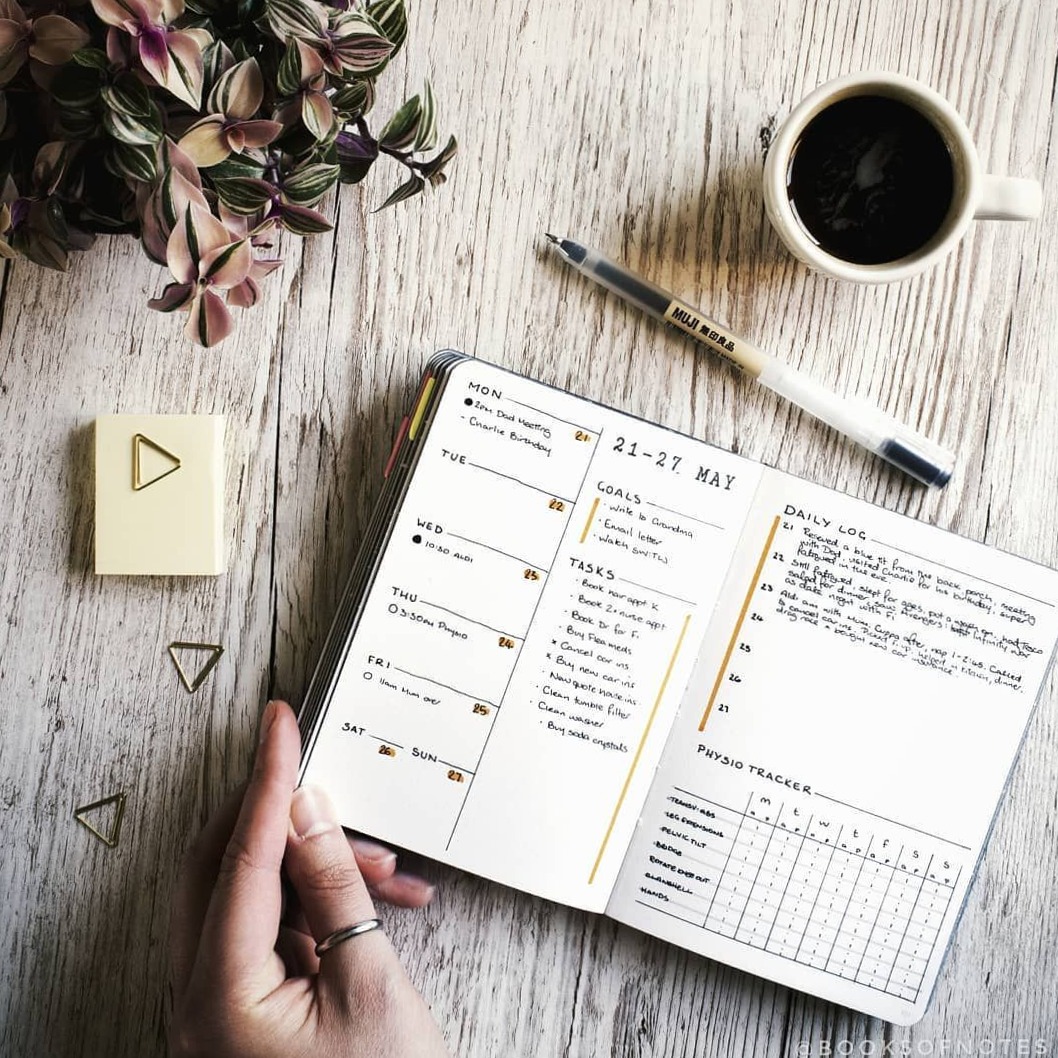 MUJI 無印良品
MON
2pm Dad Meeting
- Charlie Birthday
21
TUE
22
WED
10:30 Aldi
23
THU
3:30pm Physio
24
FRI
11am Mum over
25
SAT
26
SUN
27
21-27 MAY
GOALS
· Write to Grandma
· Email letter
· Watch
TASKS
· Book hair appt K
· Book 2x nurse appt
· Book Dr for F.
· Buy flea meds
x Cancel car ins
x Buy new car ins
· New quote house ins.
· Clean tumble filter
· Clean washer
· Buy soda crystals
DAILY LOG
21 Rescued a blue tit from the back porch, meeting
with Dad. Visited Charlie for his birthday, super
fatigued in the eve.
22 Still fatigued, slept for ages, had Tesco
salad for dinner & saw Avengers: Infinity War
as date night with F.
23 Aldi am with Mum. Cuppa after, nap 1-2:45. Called
to cancel car ins. Picked F up, helped in kitchen, dinner,
drag race & bought new car insurance.
24
25
26
27
PHYSIO TRACKER
m t w t f s s
a p a p a p a p a p a p a p
TRANSV. ABS
LEG EXTENSIONS
PELVIC TILT
BRIDGE
ROTATE KNEE OUT
CLAMSHELL
HANDS
@BOOKSOFNOTES